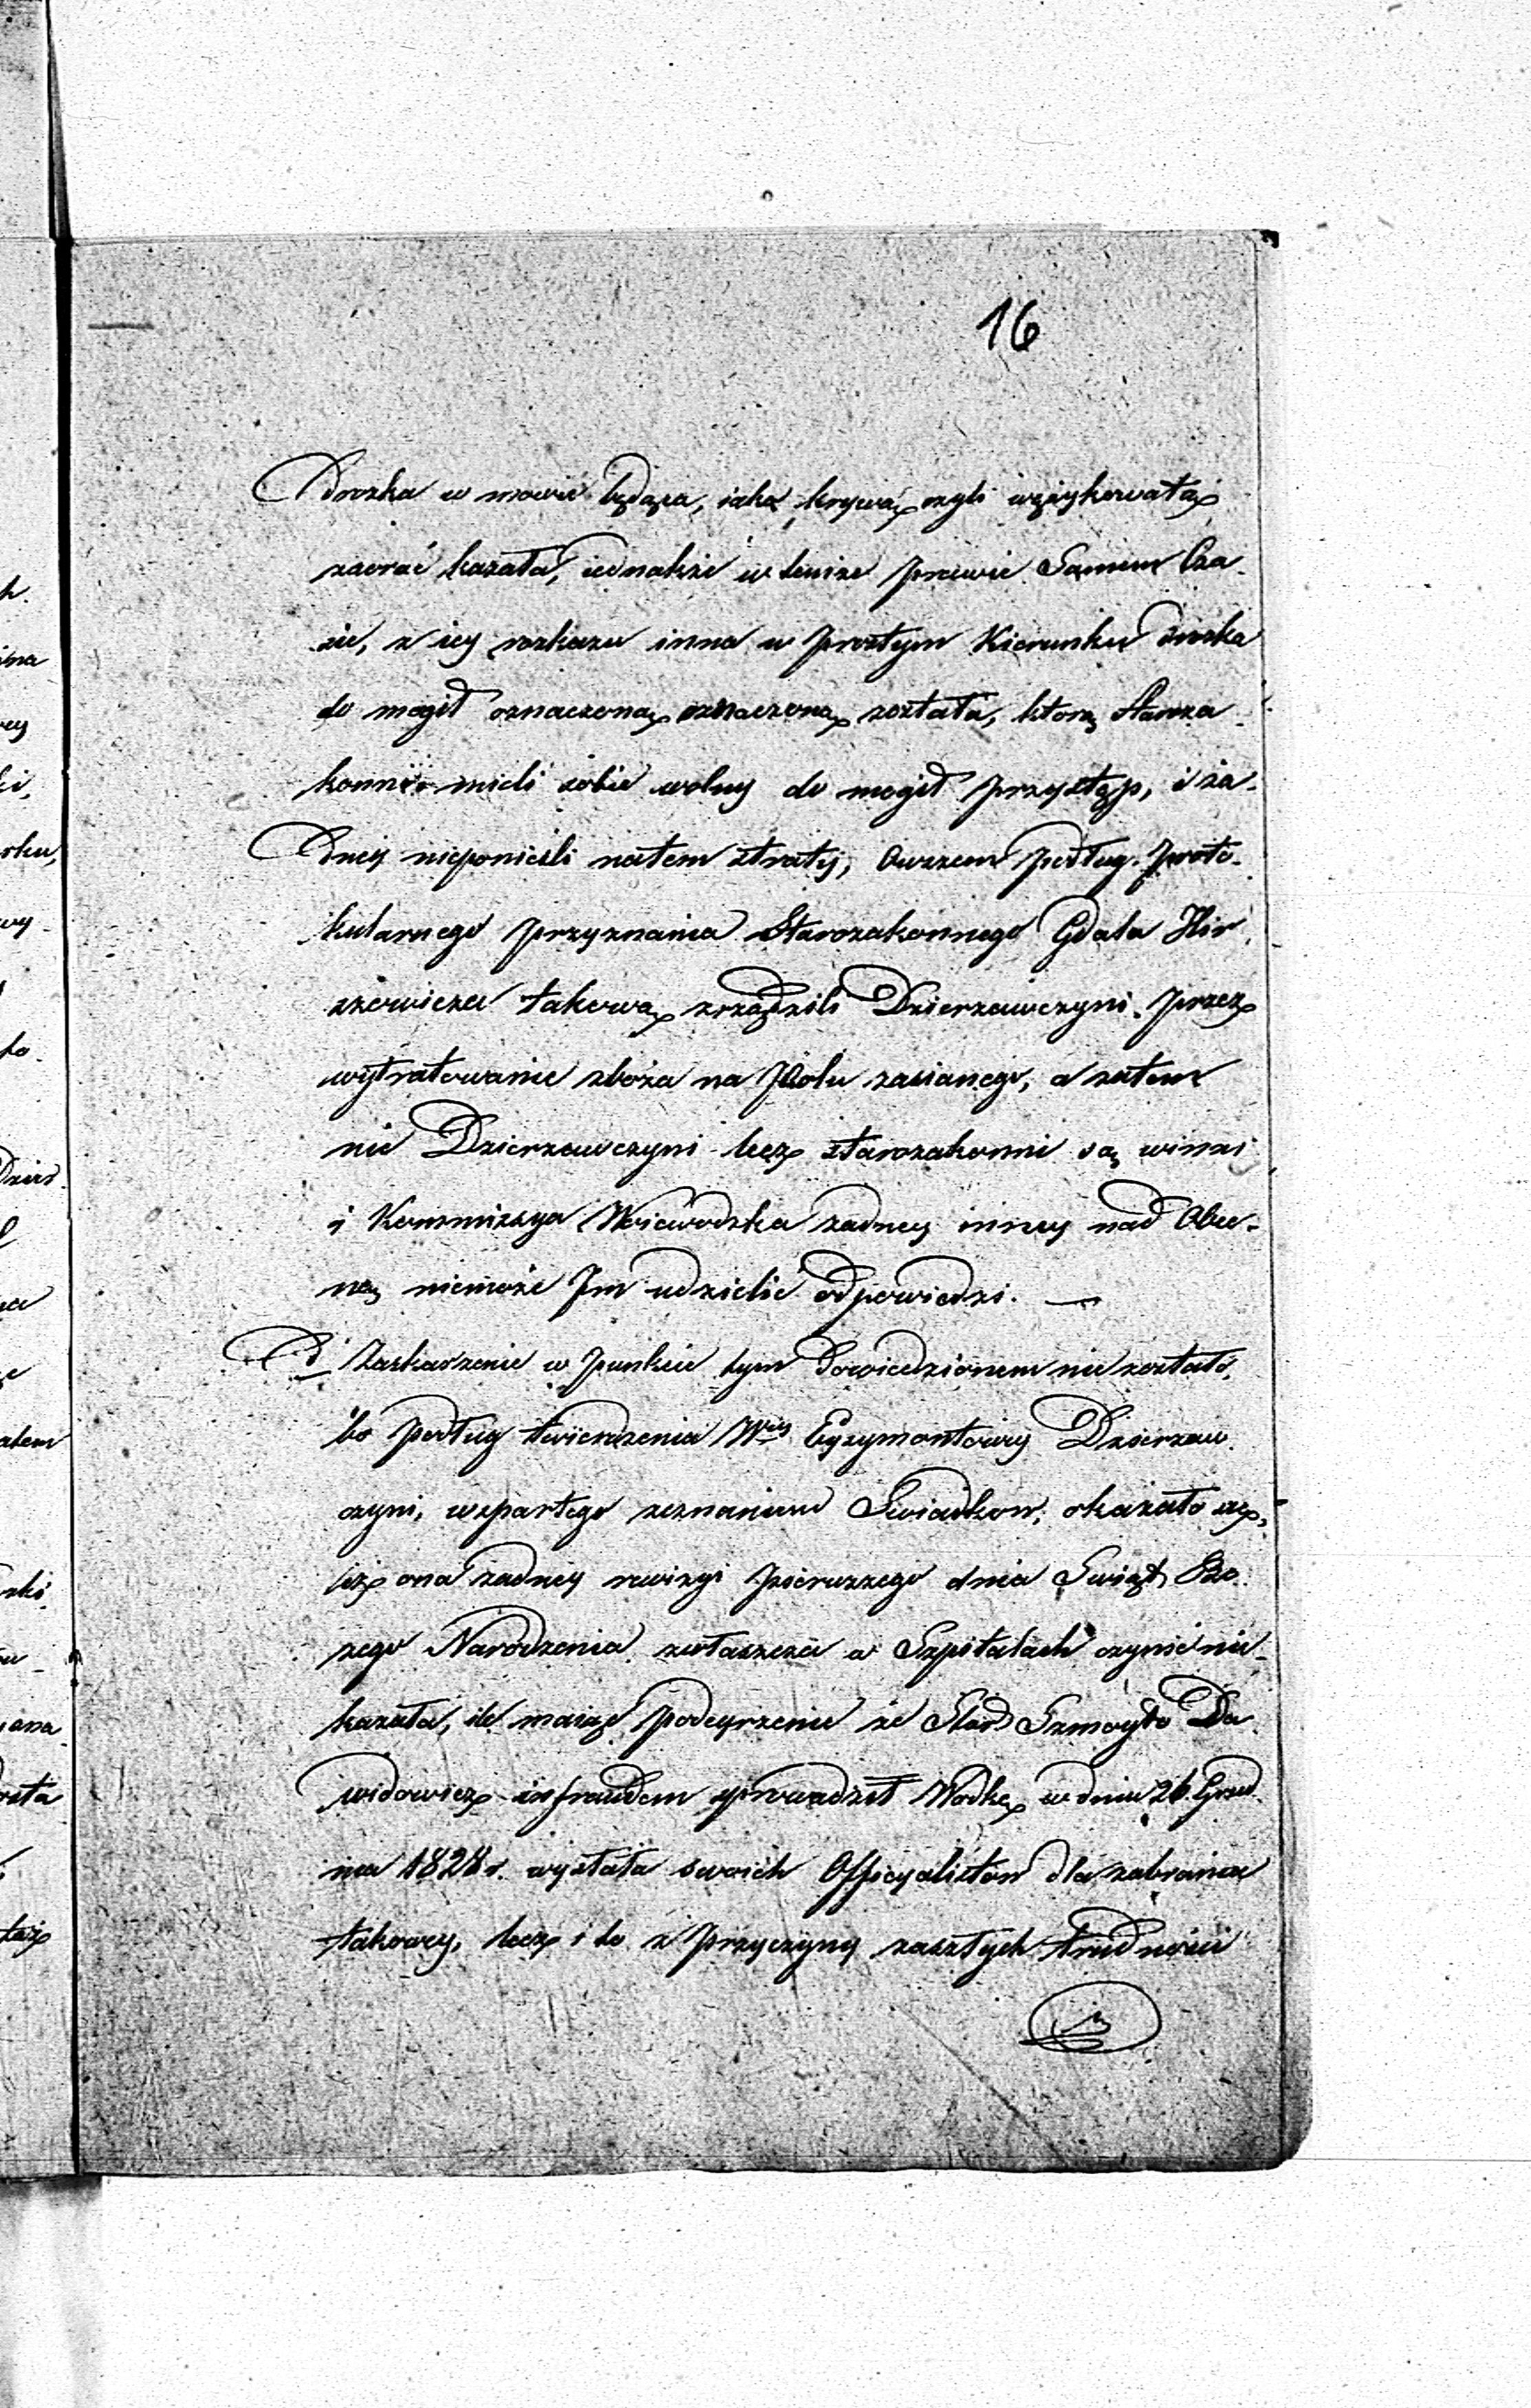 16
Drozka w mowie będąca, iako krzywą czyli węzykowatą
zaorać kazała, iednakże w temże prawie Samem Cza-
sie, z iey rozkazu inna w prostym Kierunku drozka
do mogił oznaczoną oznaczoną została, którą Staroza-
konni mieli sobie wolny do mogił przystęp, i ża-
dney nieponieśli natem straty, Owszem podług proto-
kularnego przyznania Starozakonnego Gdala Hir-
szowicza takową zrządzili Dzierzawczyni przez
wytratowanie zboża na Polu zasianego, a zatem
nie Dzierzawczyni lecz starozakonni są winni
i Kommissya Woiewodzka żadney inney nad Obec-
ną niemoże Im udzielić odpowiedzi. —
d Zaskarżenie w Punkcie tym dowiedzionem nie zostało,
bo podług twierdzenia Wney Eyzymontowey Dzierzaw-
czyni, wspartego zeznaniem Świadkow, okazało się,
iż ona żadney rewizyi pierwszego dnia Świąt Bo-
żego Narodzenia zwłaszcza w Szpitalach czynić nie-
kazała, ile maiąc podeyrzenie że Star. Szmoyło Da-
widowicz in fraudem sprowadził Wodkę w dniu 26. Grud-
nia 1828 r. wysłała swoich Officyalistów dla zabrania
takowey, lecz i to z przyczyny zaszłych trudności